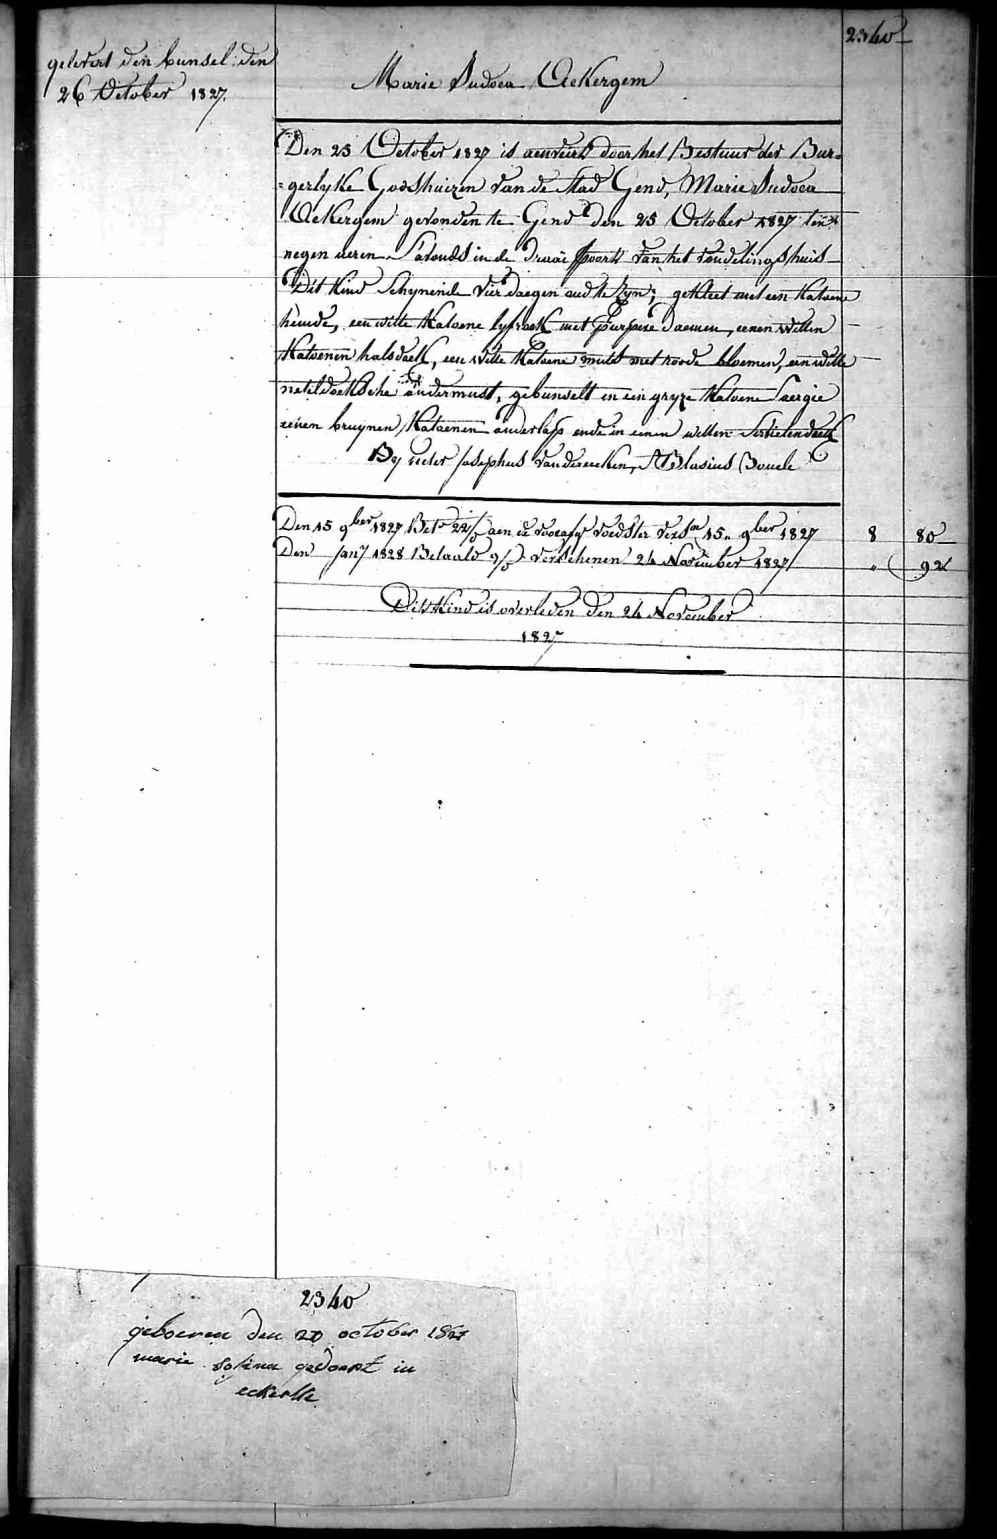 2340
gelevert den bunsel den
26 October 1827.
Marie Judoca Ackergem
Den 25 October 1827 is aenveerd door het Bestuur der Bur=
=gerlyke Godshuizen van de Stad Gend, Marie Judoca
Ackergem gevonden te Gend den 25 October 1827 ten
negen ueren S'avonds in de draai poort van het vondelingshuis
Dit kind Schynende vier daegen oud te zyn; gekleet met een Katoene
hemde, een witte Katoene lyfrock met purpere daemen, eenen witten
Katoenen halsdoek, een witte Katoene muts met roode bloemen, een witte
neteldoeksche ondermuts, gebunselt in een gryze Katoene Saergie
eenen bruynen Katoenen onderlap ende in eenen witten Servietendoek
By Pieter Josephus Vandereecken, Blasius Bouck
Den 15 9ber 1827 Bet. aen de voedster vers. 15 9ber 1827 8 80
Den Jany 1828 Betaald verschenen 24 November 1827 " 92
Dit Kind is overleden den 24 November
1827
2340
geboeren den 20 october 1827
marie gedoopt in